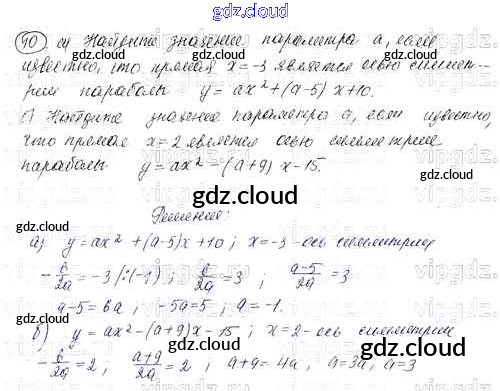 gdz.cloud
40) а) Найдите значение параметра а, если
известно, что прямая x=-3 является осью симмет-
рии параболы y=ax²+(a-5)x+10.
б) Найдите значение параметра а, если известно,
что прямая x=2 является осью симметрии
параболы y=ax²-(a+9)x-15.
gdz.cloud gdz.cloud
Решение:
а) y=ax²+(a-5)x+10; x=-3-ось симметрии
-b/2a=-3/:(-1); b/2a=3; a-5/2a=3
a-5=6a; -5a=5; a=-1.
б) y=ax²-(a+9)x-15; x=2-ось симметрии
-b/2a=2; a+9/2a=2; a+9=4a; a=3a, a=3
gdz.cloud gdz.cloud